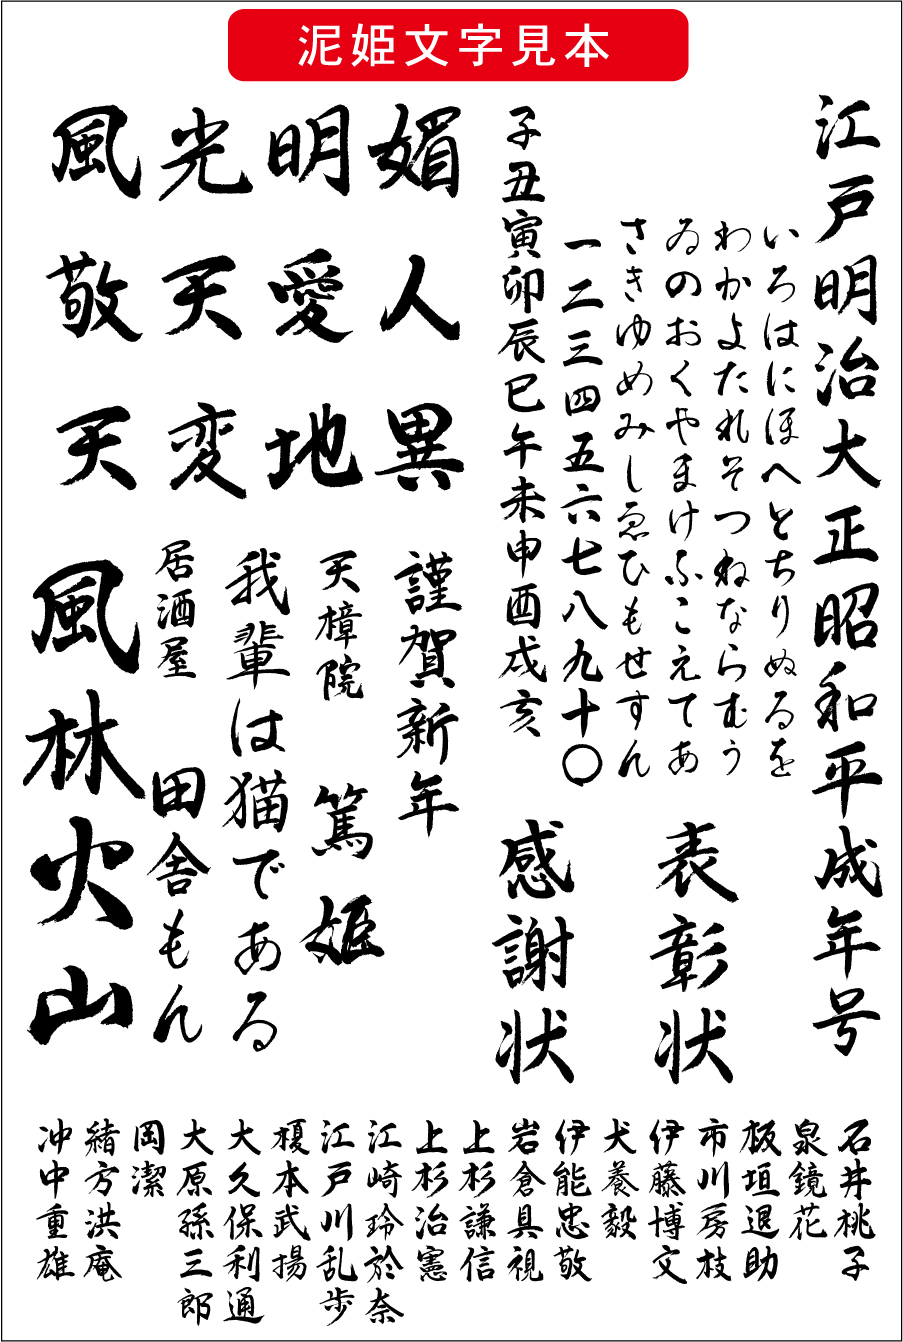 泥姫文字見本
江戸明治大正昭和平成年号
いろはにほへとちりぬるを
わかよたれそつねならむう
ゐのおくやまけふこえてあ
さきゆめみしゑひもせすん
一二三四五六七八九十〇
子丑寅卯辰巳午未申酉戌亥
表彰状
感謝状
媚人異
明愛地
光天変
風敬天
謹賀新年
天樟院 篤姫
我輩は猫である
居酒屋 田舎もん
風林火山
石井桃子
泉鏡花
板垣退助
市川房枝
伊藤博文
犬養毅
伊能忠敬
岩倉具視
上杉謙信
上杉治憲
江崎玲於奈
江戸川乱歩
榎本武揚
大久保利通
大原孫三郎
岡潔
緒方洪庵
沖中重雄